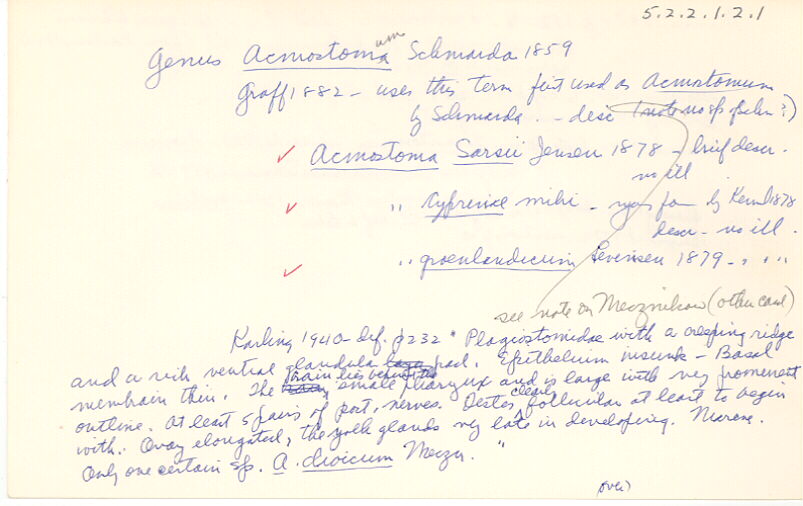 5.2.2.1.2.1
Genus Acmostoma um Schmarda 1859
Graff 1882 - uses this term first used as Acmostomum
by Schmarda. - desc (note no sp of Schm ?)
✓ Acmostoma Sarsii Jensen 1878 - brief descr.
no ill
✓ " Cyprinae mihi - by 1878
descr - no ill.
✓ " groenlandicum Levinsen 1879 - " "
see note on Mecznikow (other card)
Karling 1940 - def. p232 " Plagiostomidae with a creeping ridge
and a rich ventral glandula pad. Epithelium insunk - Basal
membrain thin. The brain lies behind the small pharynx and is large with very prominent
outline. At least 5 pairs of post. nerves. Testes clearl follicular at least to begin
with. Ovary elongated, the yolk glands very late in developing. Marine.
Only one certain sp. A. dioicum Meczn. "
(over)